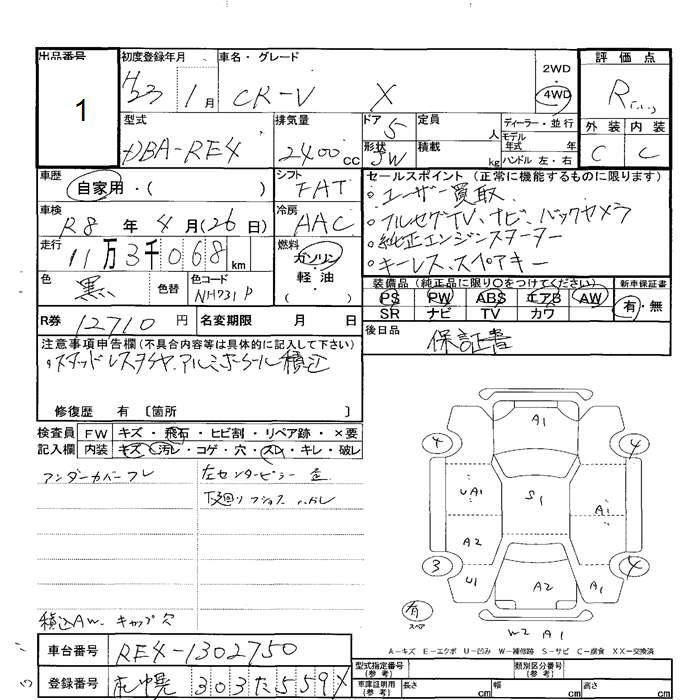 出品番号 初度登録年月 車名・グレード 評価点
1 H23 1月 CR-V X 2WD 4WD R
型式 排気量 ドア 5 定員 人 ディーラー・並行 外装 内装
DBA-RE4 2400cc 形状 5W 積載 kg モデル年式 年式 ハンドル 左・右 C C
車歴 シフト セールスポイント (正常に機能するものに限ります)
自家用・( ) FAT 。ユーザー買取
車検 冷房 。フルセグTV、ナビ、バックカメラ
R8年4月(26日) AAC 。純正エンジンスターター
走行 燃料 。キーレス、スペアキー
11万3千068km ガソリン・軽油・( )
装備品 (純正品に限り○をつけてください) 新車保証書
色 黒 色替 色コード NH731P PS PW ABS エアB AW 有・無
SR ナビ TV カワ
R券 12710円 名変期限 月 日 後日品 保証書
注意事項申告欄(不具合内容等は具体的に記入して下さい)
・スタッドレスタイヤ、アルミホイール積込
修復歴 有 〔箇所 〕
検査員 FW キズ・飛石・ヒビ割・リペア跡・×要
記入欄 内装 キズ・汚レ・コゲ・穴・スレ・キレ・破レ
アンダーカバーワレ 左センターピラー
下廻り
積込AW、キャップ欠
A1
4 4
UA1 S1 A1
A2
3 4
U1 A2 A1
有
スペア
W2 A1
A-キズ E-エクボ U-凹み W-補修跡 S-サビ C-腐食 XX-交換済
車台番号 RE4-1302750
型式指定番号(参考) 類別区分番号(参考)
登録番号 札幌 303 た 559
車庫証明用(参考) 長さ cm 幅 cm 高さ cm